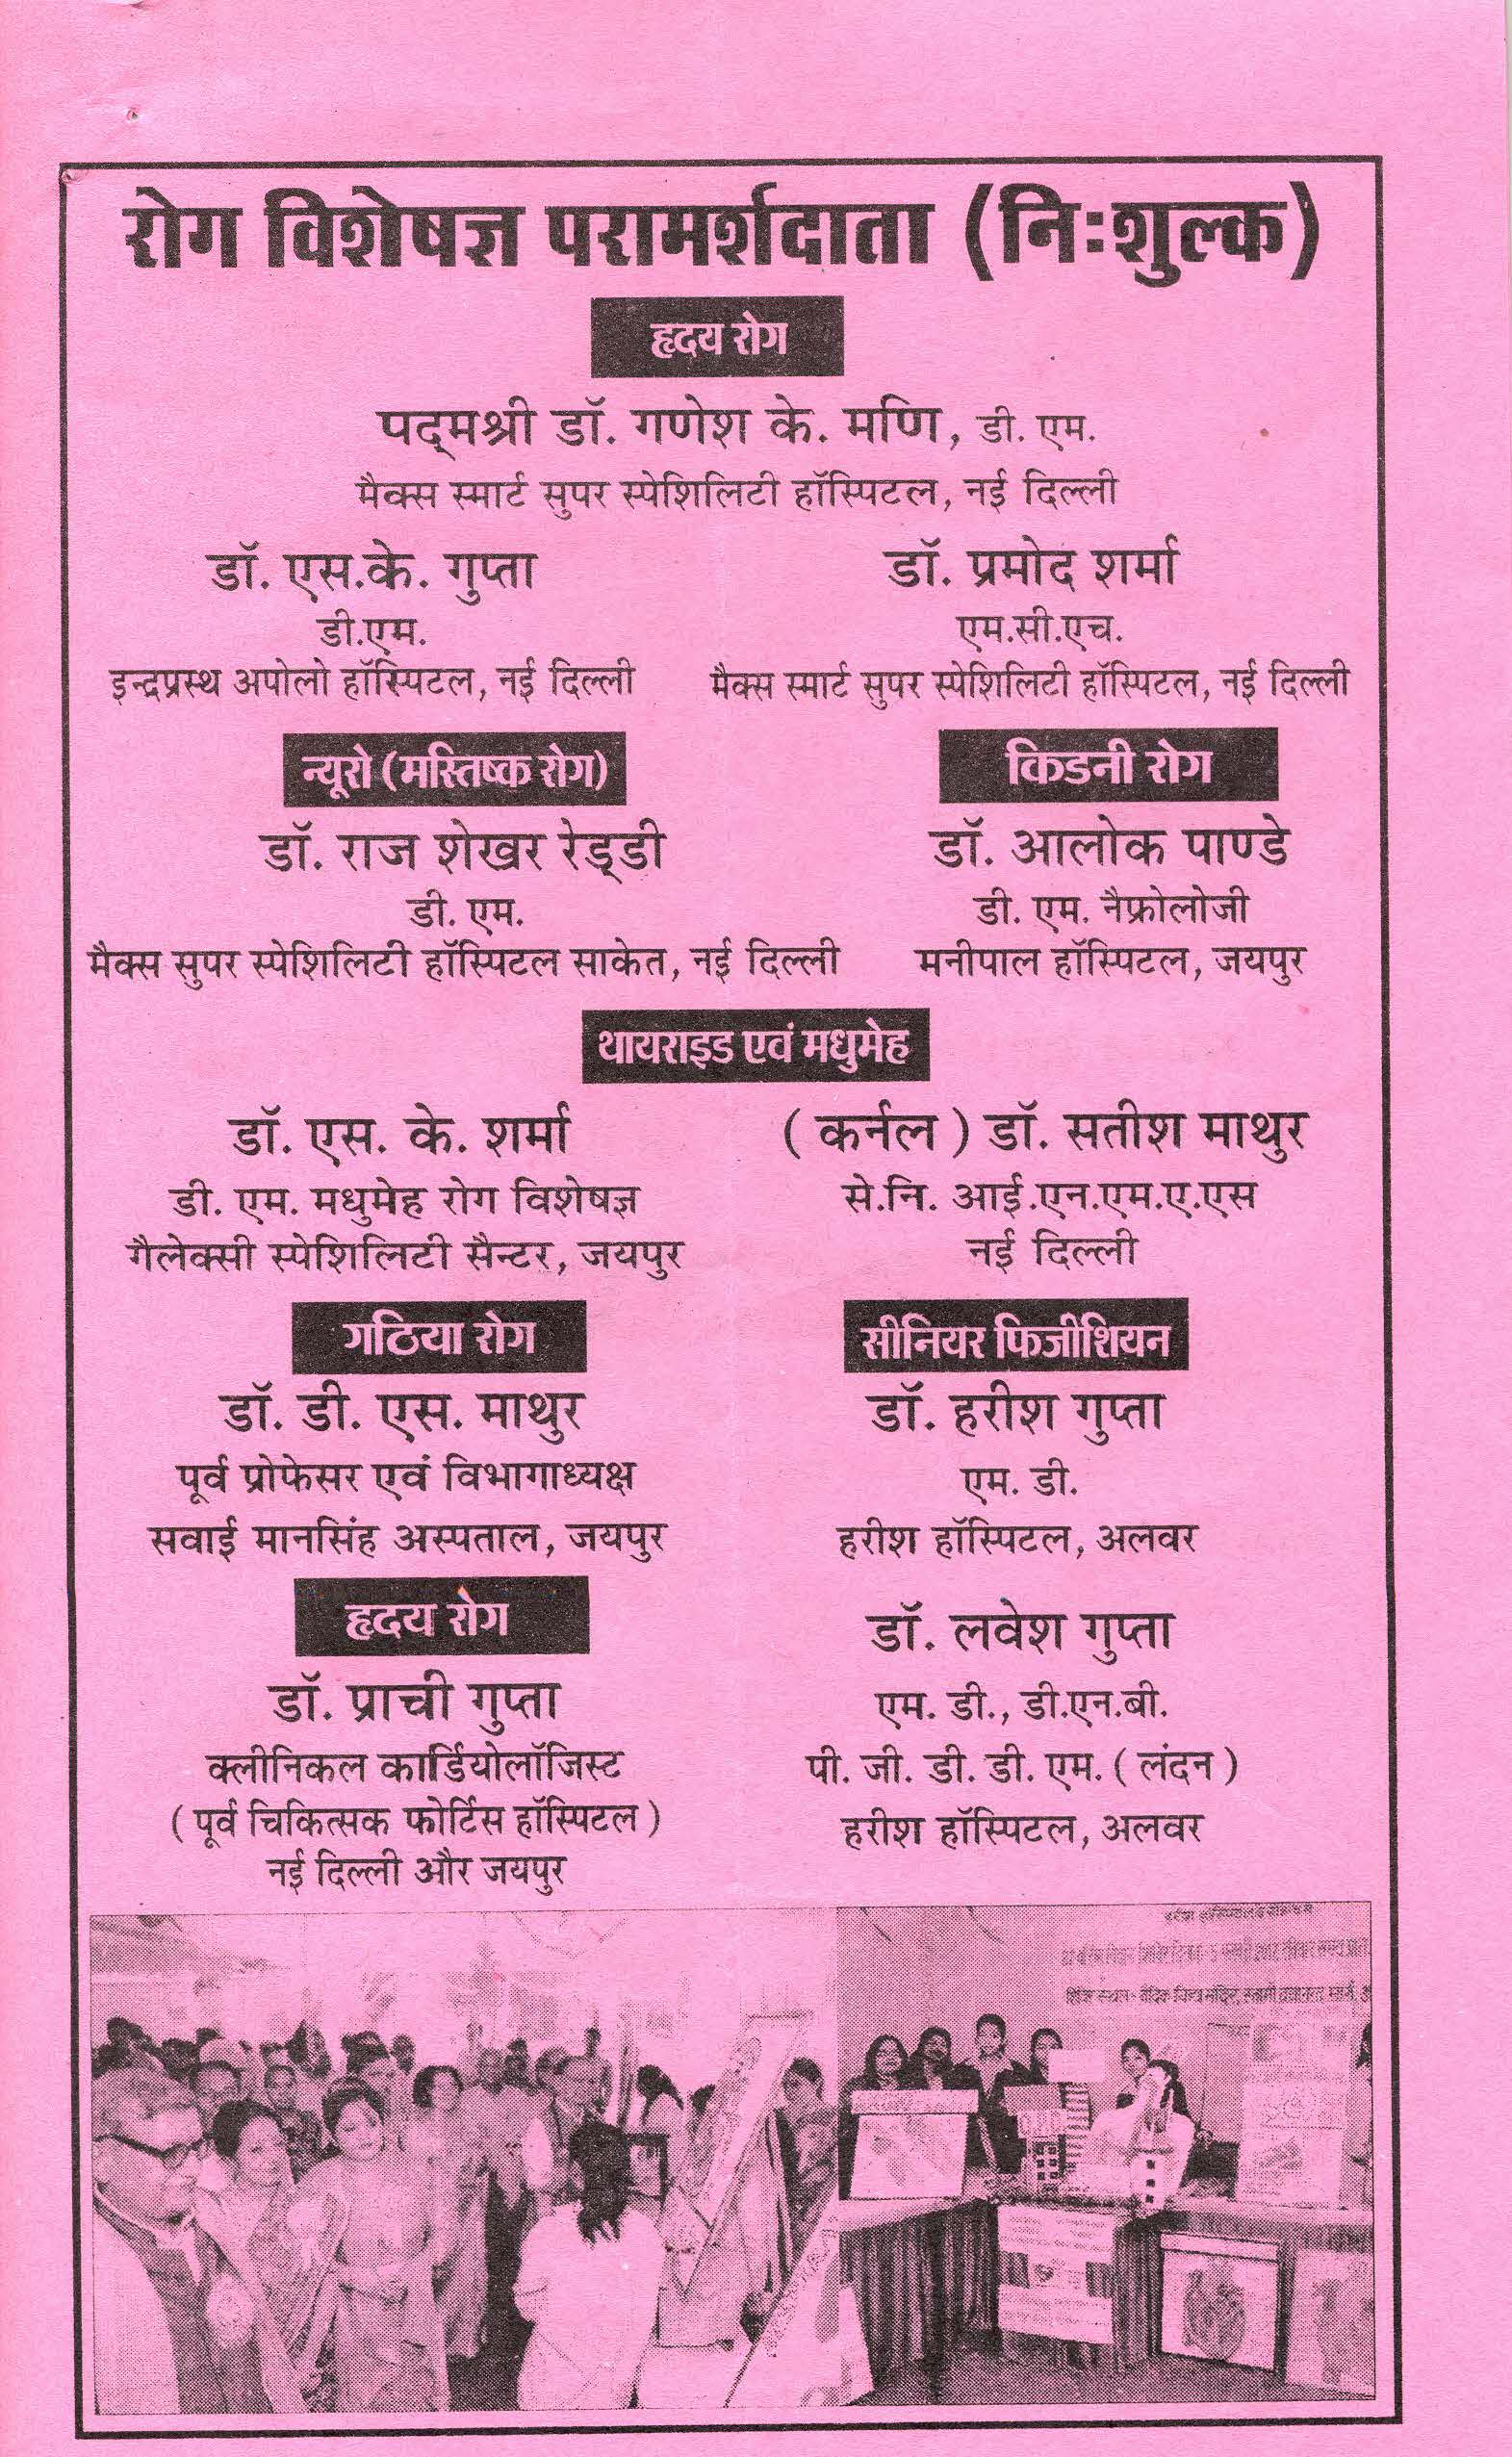 रोग विशेषज्ञ परामर्शदाता (निःशुल्क)
हृदय रोग
पद्मश्री डॉ. गणेश के. मणि, डी. एम.
मैक्स स्मार्ट सुपर स्पेशिलिटी हॉस्पिटल, नई दिल्ली
डॉ. एस.के. गुप्ता
डी.एम.
इन्द्रप्रस्थ अपोलो हॉस्पिटल, नई दिल्ली
डॉ. प्रमोद शर्मा
एम.सी.एच.
मैक्स स्मार्ट सुपर स्पेशिलिटी हॉस्पिटल, नई दिल्ली
न्यूरो (मस्तिष्क रोग)
डॉ. राज शेखर रेड्डी
डी. एम.
मैक्स सुपर स्पेशिलिटी हॉस्पिटल साकेत, नई दिल्ली
किडनी रोग
डॉ. आलोक पाण्डे
डी. एम. नैफ्रोलोजी
मनीपाल हॉस्पिटल, जयपुर
थायराइड एवं मधुमेह
डॉ. एस. के. शर्मा
डी. एम. मधुमेह रोग विशेषज्ञ
गैलेक्सी स्पेशिलिटी सैन्टर, जयपुर
( कर्नल ) डॉ. सतीश माथुर
से.नि. आई.एन.एम.ए.एस
नई दिल्ली
गठिया रोग
डॉ. डी. एस. माथुर
पूर्व प्रोफेसर एवं विभागाध्यक्ष
सवाई मानसिंह अस्पताल, जयपुर
सीनियर फिजीशियन
डॉ. हरीश गुप्ता
एम. डी.
हरीश हॉस्पिटल, अलवर
हृदय रोग
डॉ. प्राची गुप्ता
क्लीनिकल कार्डियोलॉजिस्ट
( पूर्व चिकित्सक फोर्टिस हॉस्पिटल )
नई दिल्ली और जयपुर
डॉ. लवेश गुप्ता
एम. डी., डी.एन.बी.
पी. जी. डी. डी. एम. ( लंदन )
हरीश हॉस्पिटल, अलवर